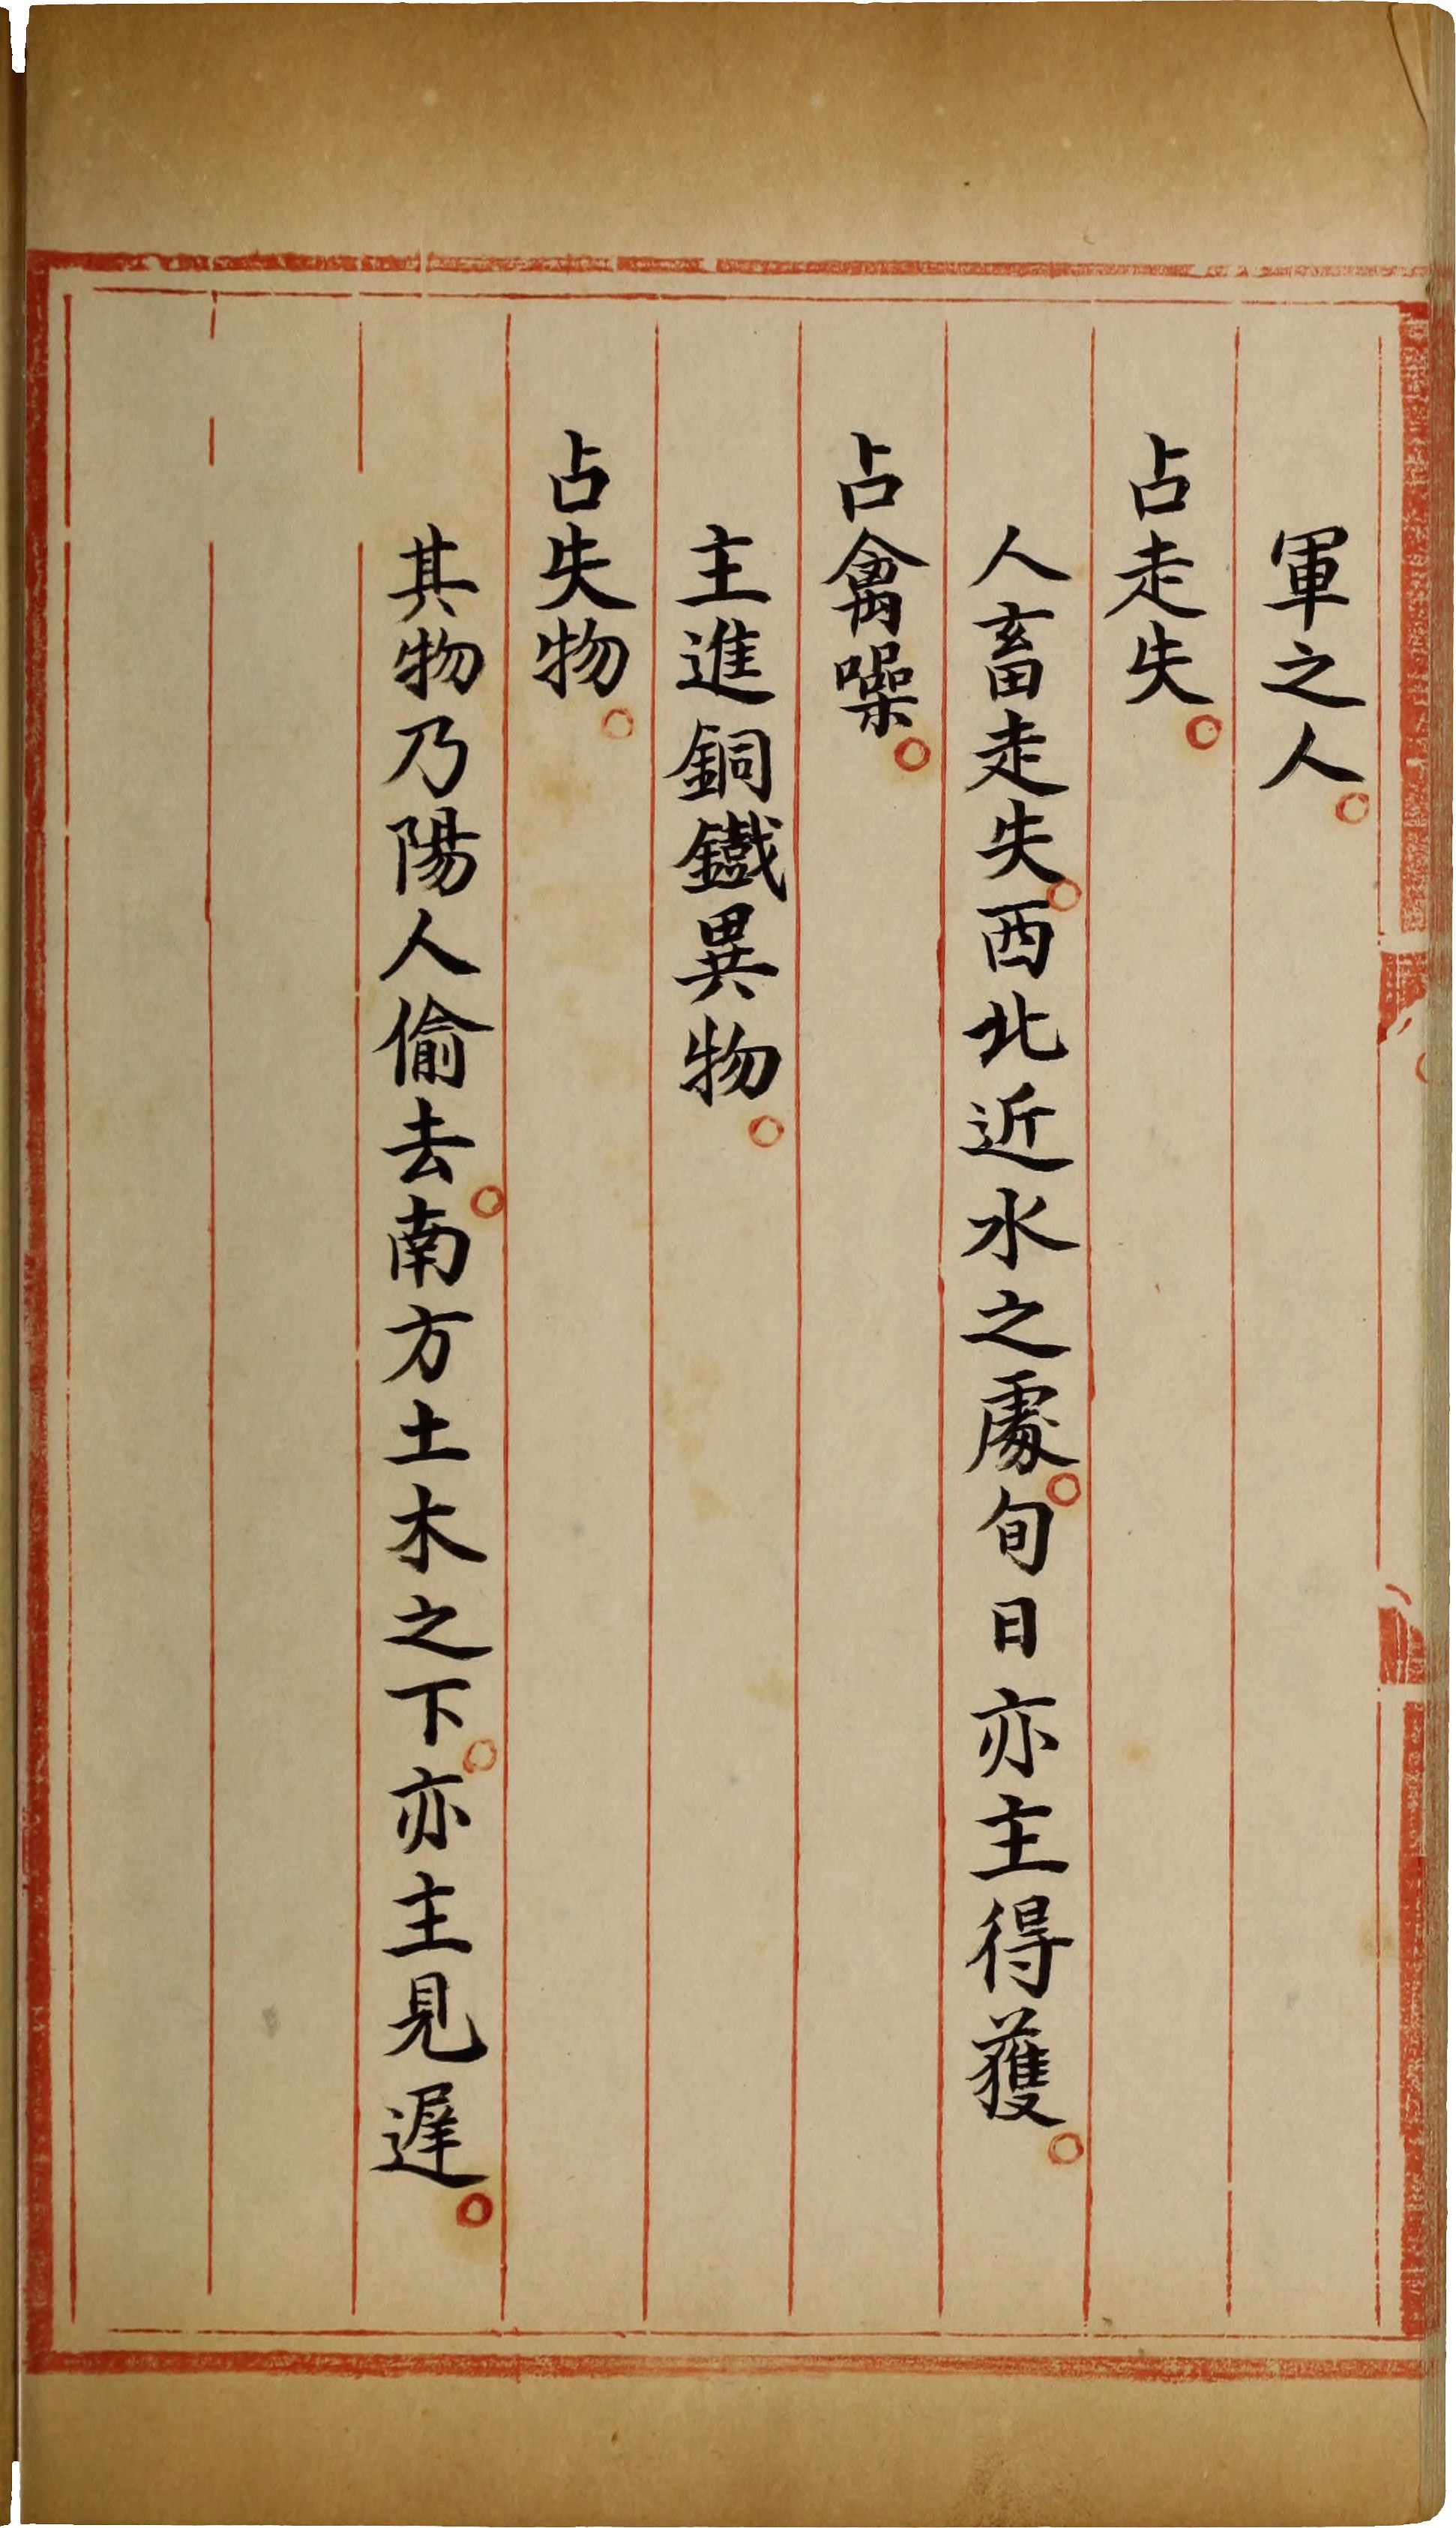 軍之人。
占走失。
人畜走失。西北近水之處。旬日亦主得獲。
占禽噪。
主進銅鐵異物。
占失物。
其物乃陽人偷去。南方土木之下。亦主見遲。